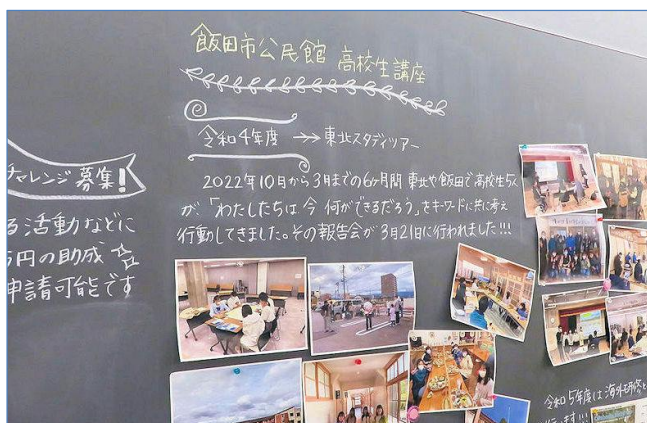 飯田市公民館 高校生講座
令和4年度 →→ 東北スタディツアー
2022年10月から3月までの6ヶ月間 東北や飯田で高校生5人
が、「わたしたちは 今 何ができるだろう」をキーワードに共に考え
行動してきました。その報告会が3月21日に行われました!!!
チャレンジ募集!
る活動などに
万円の助成
申請可能です
令和5年度は海外研修を
行います!!!